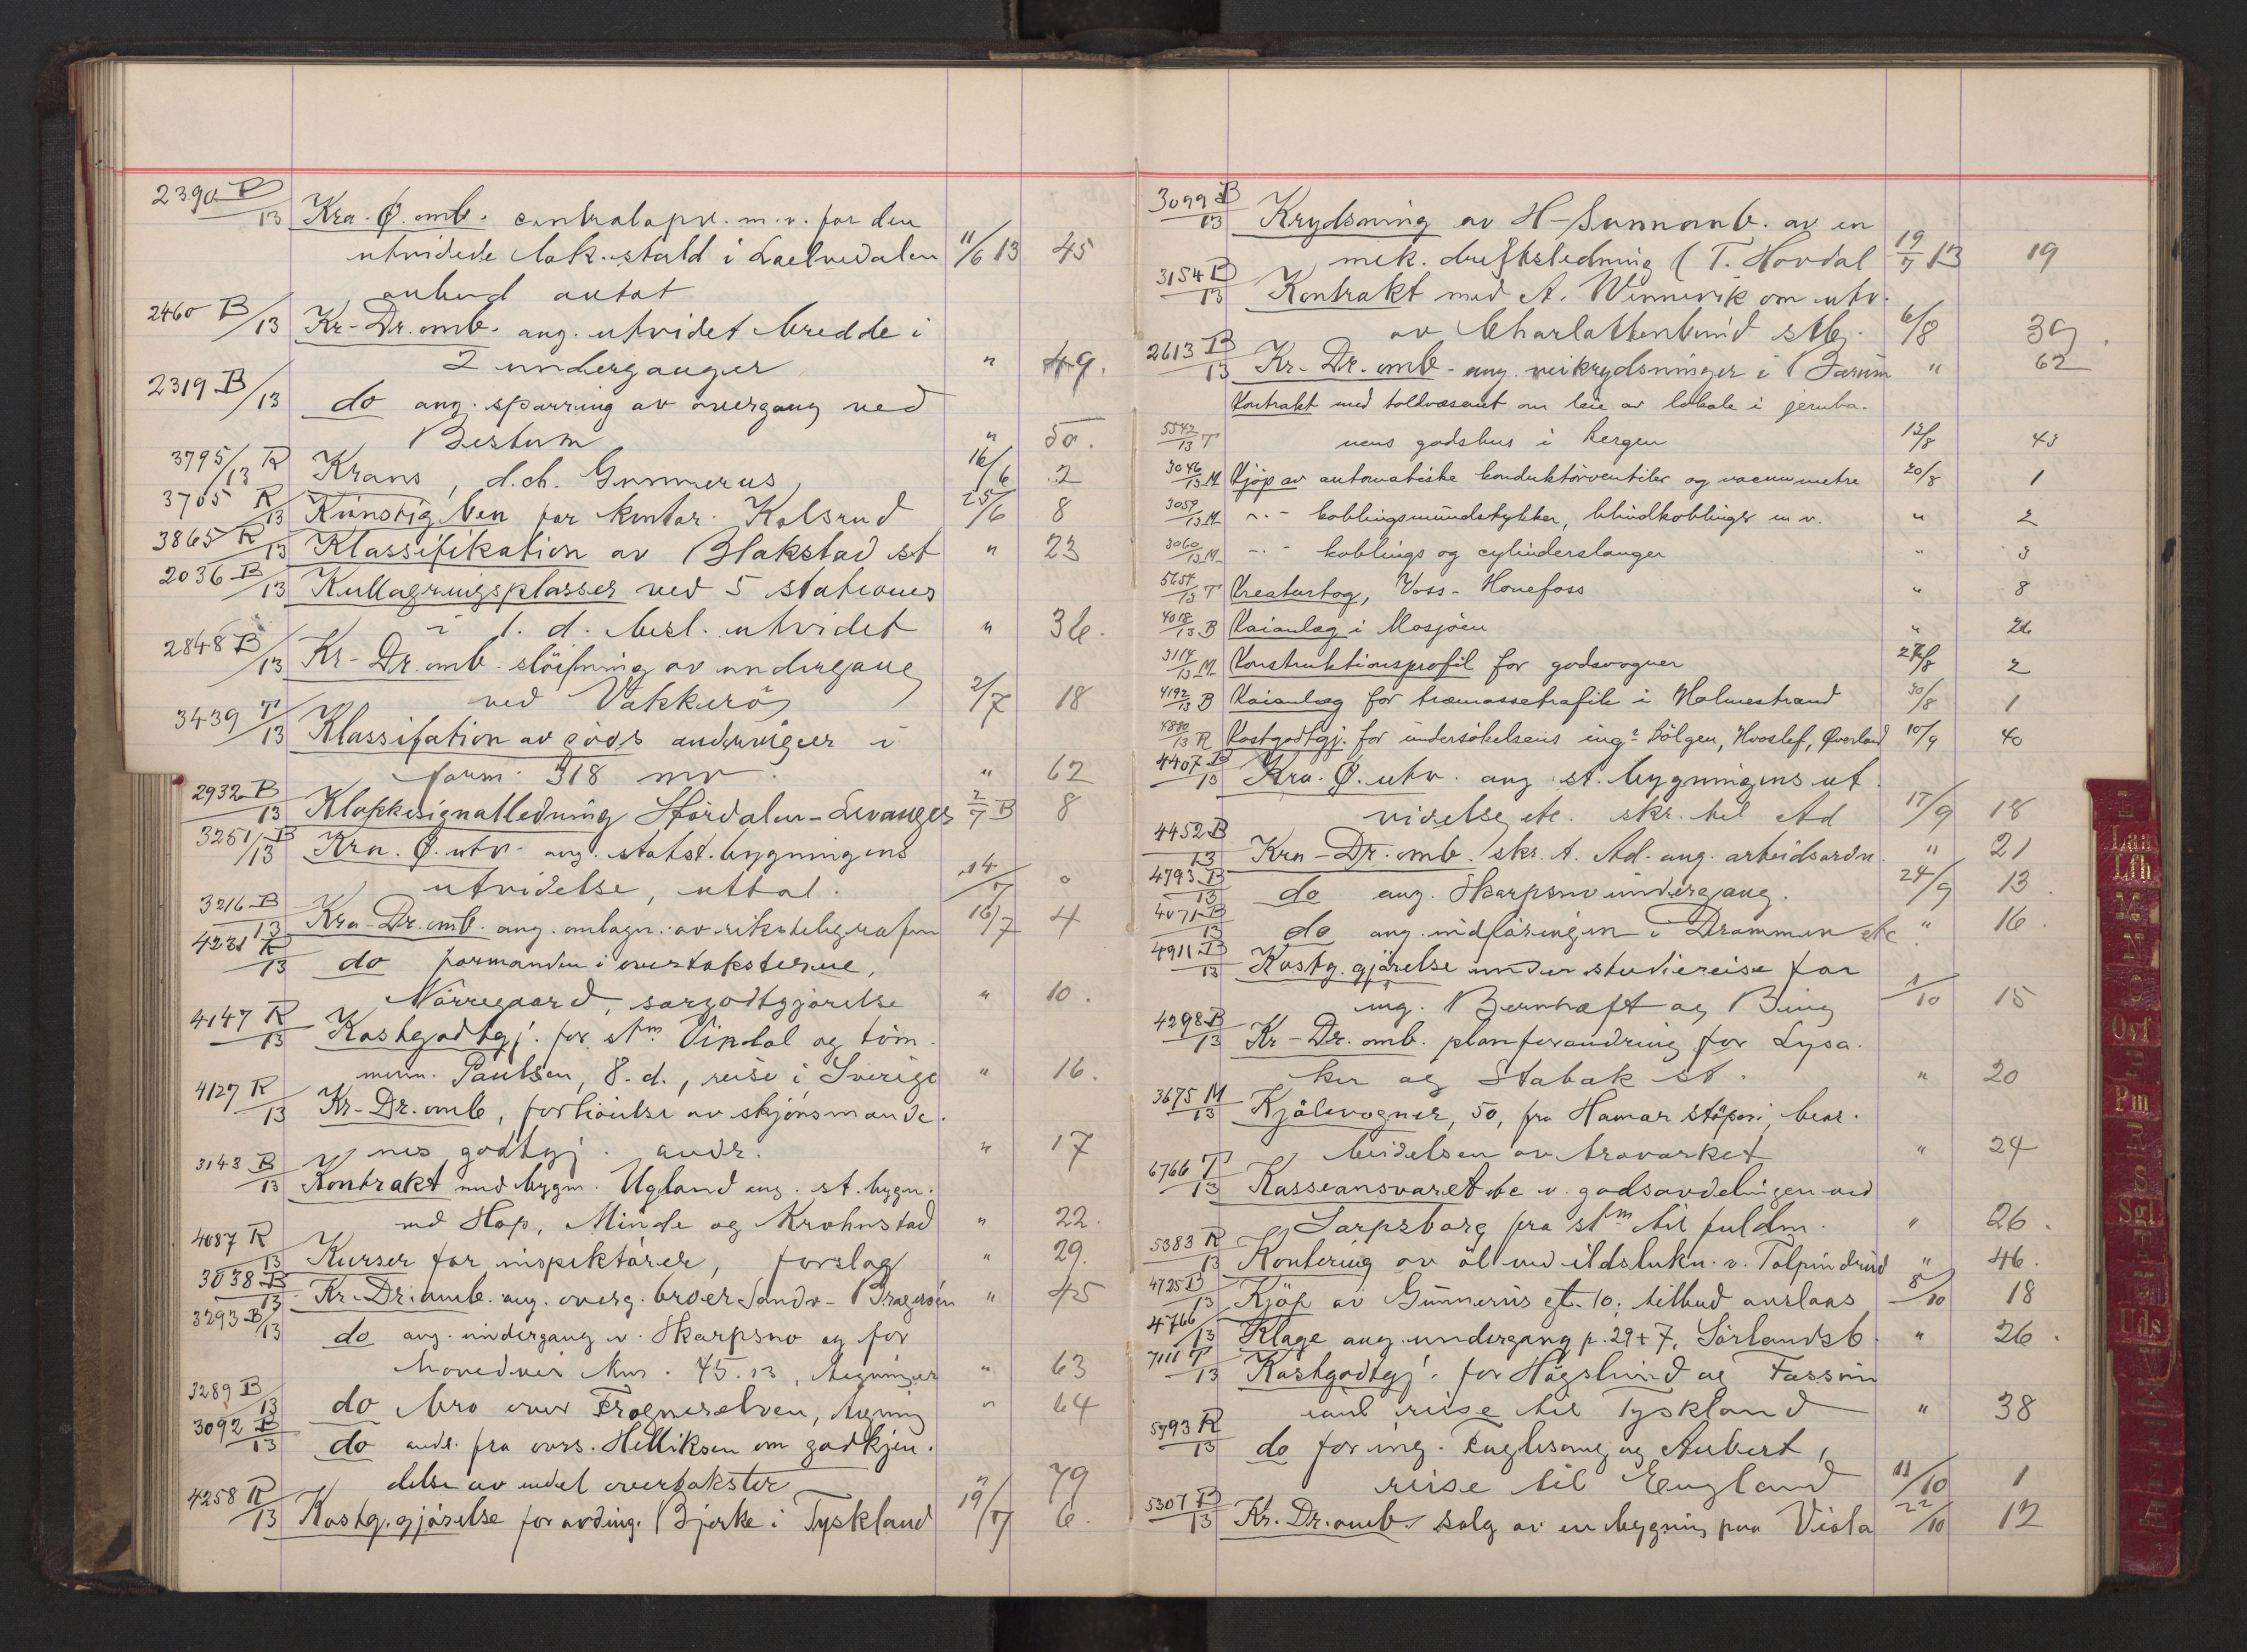 2390 B/13 Kra. Ø. omb. centralapp. m.v. for den
utvidede lok. stald i Laelvedalen 11/6 13 45
anbud antat
2460 B/13 Kr-Dr. omb. ang. utvidet bredde i
2 underganger " 49.
2319 B/13 do ang. sparring av overgang ved
Bestum " 50.
3795/13 R Krans, d.ch. Gunnerus, 16/6 2
3705 R/13 Kunstig ben for kontor. Kolsrud 25/6 8
3865 R/13 Klassifikation av Blakstad st " 23
2036 B/13 Kullagringsplasser ved 5 stationer
i 1. d. besl. utvidet " 36.
2848 B/13 Kr-Dr. omb. slöifning av undergang
ved Vækkerö 2/7 18
3439 T/13 Klassifation av gods anderviger i
form. 318 mv. " 62
2932 B/13 Klokkesignalledning Stördalen-Levanger 2/7 B 8
3251 B/13 Kra. Ø. utv. ang. statst. bygningens
utvidelse, uttal. 14/7 0
3216 B/13 Kra-Dr. omb. ang. omlagn. av rikstelegrafen 16/7 4
4231 R/13 do formanden i overtaksterne,
Nörregaard, særgodtgjörelse " 10.
4147 R/13 Kostgodtgj. for stm. Vipdal og töm.
merm. Paulsen, 8. d., reise i Sverige " 16.
4127 R/13 Kr-Dr. omb, forhöielse av skjönsmænde.
nes godtgj. andr. " 17
3143 B/13 Kontrakt med bygm. Ugland ang. st. bygn.
ved Hop, Minde og Krohnstad " 22.
4087 R/13 Kurser for inspektörer, forslag " 29.
3038 B/13 Kr. Dr. omb. ang. overg. broer Sandv-Bragerøen " 45
3293 B/13 do ang. undergang v. Skarpsno og for
hovedvei km. 45.13, tegninger " 63
3289 B/13 do bro over Frognerelven, tegning " 64
3092 B/13 do andr. fra overs. Helliksen om godkjen.
delse av endel overtakster " 79
4258 R/13 Kostg.gjörelse for avding. Bjerke i Tyskland 19/7 6.
3099 B/13 Krydsning av H-Sunnanb. av en
mek. driftsledning (T. Hovdal 19/7 13 19
3154 B/13 Kontrakt med A. Winnevik om utv.
av Charlottenlund stb. 6/8 39.
2613 B/13 Kr.-Dr. omb. ang. veikrydsninger i Bærum " 62
Kontrakt med toldvæsenet om leie av lokale i jernba-
5542/13 T nens godshus i Bergen 12/8 43
3046/13 M Kjöp av automatiske konduktörventiler og vacuummetre 20/8 1
3059/13 M -.- koblingsmundstykker, blindkoblinger m v. " 2
3060/13 M -.- koblings og cylinderslanger " 3
5654/13 T Kreaturtog, Voss-Hönefoss " 8
4018/13 B Kaianlæg i Mosjöen " 26
3114/13 M Konstruktionsprofil for godsvogner 27/8 2
4192/13 B Kaianlæg for træmassetrafik i Holmestrand 30/8 1
4880/13 R Kostgodtgj. for undersökelsens ingr. Bölgen, Hvoslef, Øverland 10/9 40
4407 B/13 Kra. Ø. utv. ang. st. bygningens ut
videlse etc. skr. til Ad 17/9 18
4452 B/13 Kra-Dr. omb. skr. t. Ad. ang. arbeidsordn. " 21
4793 B/13 do ang. Skarpsno undergang. 24/9 13.
4071 B/13 do ang. indföringen i Drammen etc " 16.
4911 B/13 Kostg.gjörelse under studiereise for
ing. Bernhoft og Bing 1/10 15
4298 B/13 Kr-Dr. omb. planforandring for Lysa.
ker og Stabæk st. " 20
3675 M/13 Kjölevogner, 50, fra Hamar stöperi, bear.
beidelsen av træværket " 24
6766 T/13 Kasseansvaret etc v. godsavdelingen ved
Sarpsborg fra stm til fuldm. " 26.
5383 R/13 Kontering av öl ved ildslukn. v. Tolpinrud " 46.
4725 B/13 Kjöp av Gunnerus gt. 10; tilbud avslaas 8/10 18
4766/13 Klage ang. undergang p. 29+7, Sörlandsb. " 26.
7111 T/13 Kostgodtgj. for Högslund og Fassum
samt reise til Tyskland " 38
5793 R/13 do for ing. Fuglesang og Aubert,
reise til England 11/10 1
5307 B/13 Kr. Dr. omb. salg av en bygning paa Viola 22/10 12
Laa
Lfh
M
N
O
Ovf
P
Pm
R
S
Sgl
T
U
Uds